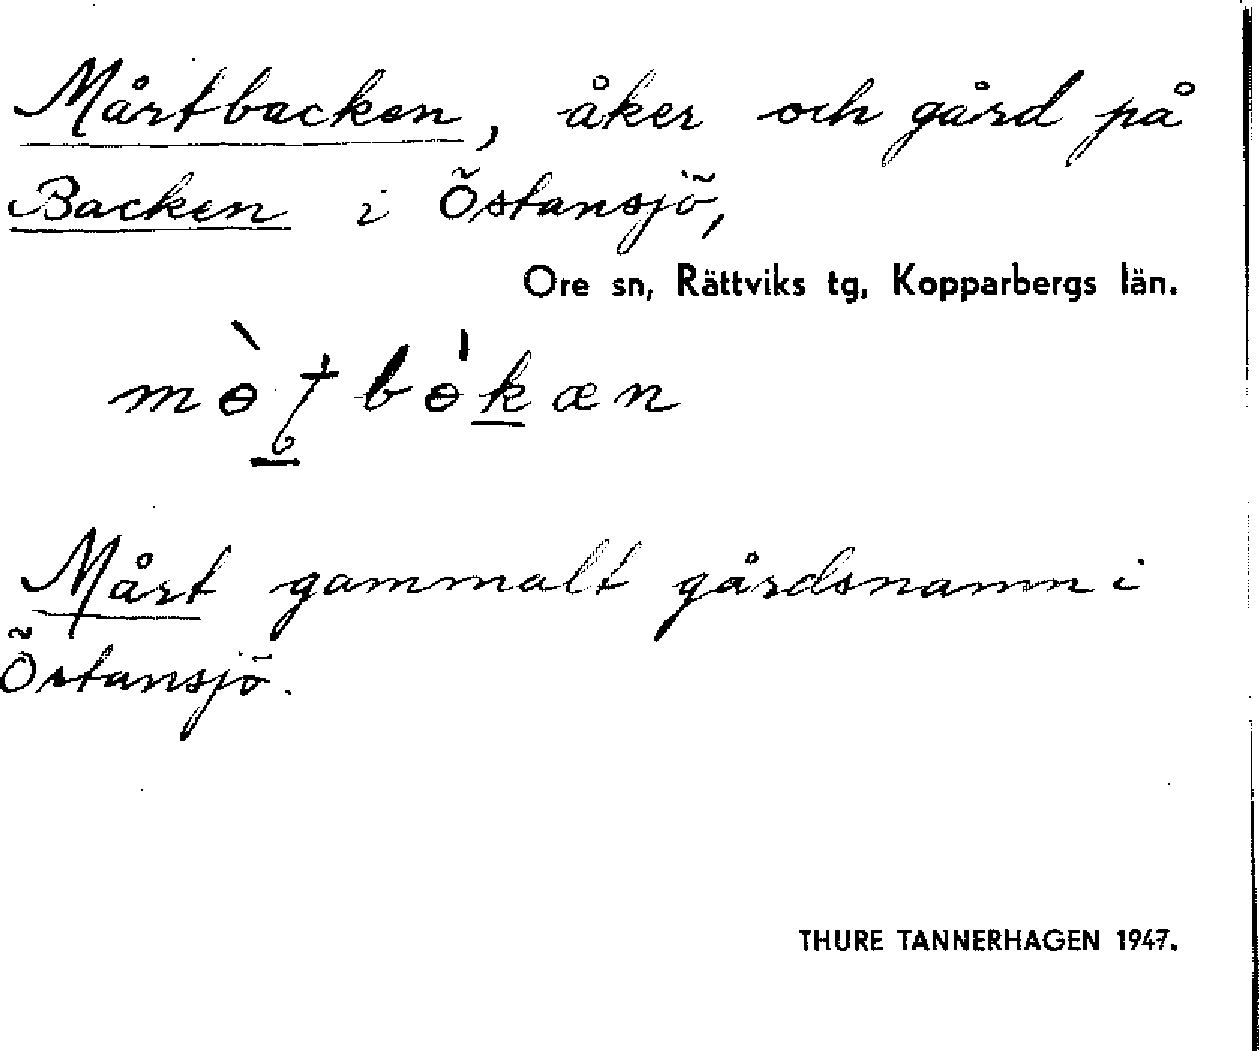 Mårtbacken, åker och gård på
Backen i Östansjö,
Ore sn, Rättviks tg, Kopparbergs län.
Mårt gammalt gårdsnamn i
Östansjö.
THURE TANNERHAGEN 1947.